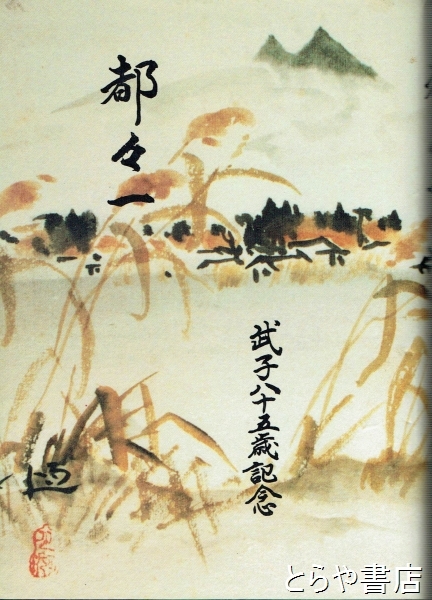 都々一
武子八十五歳記念
とらや書店